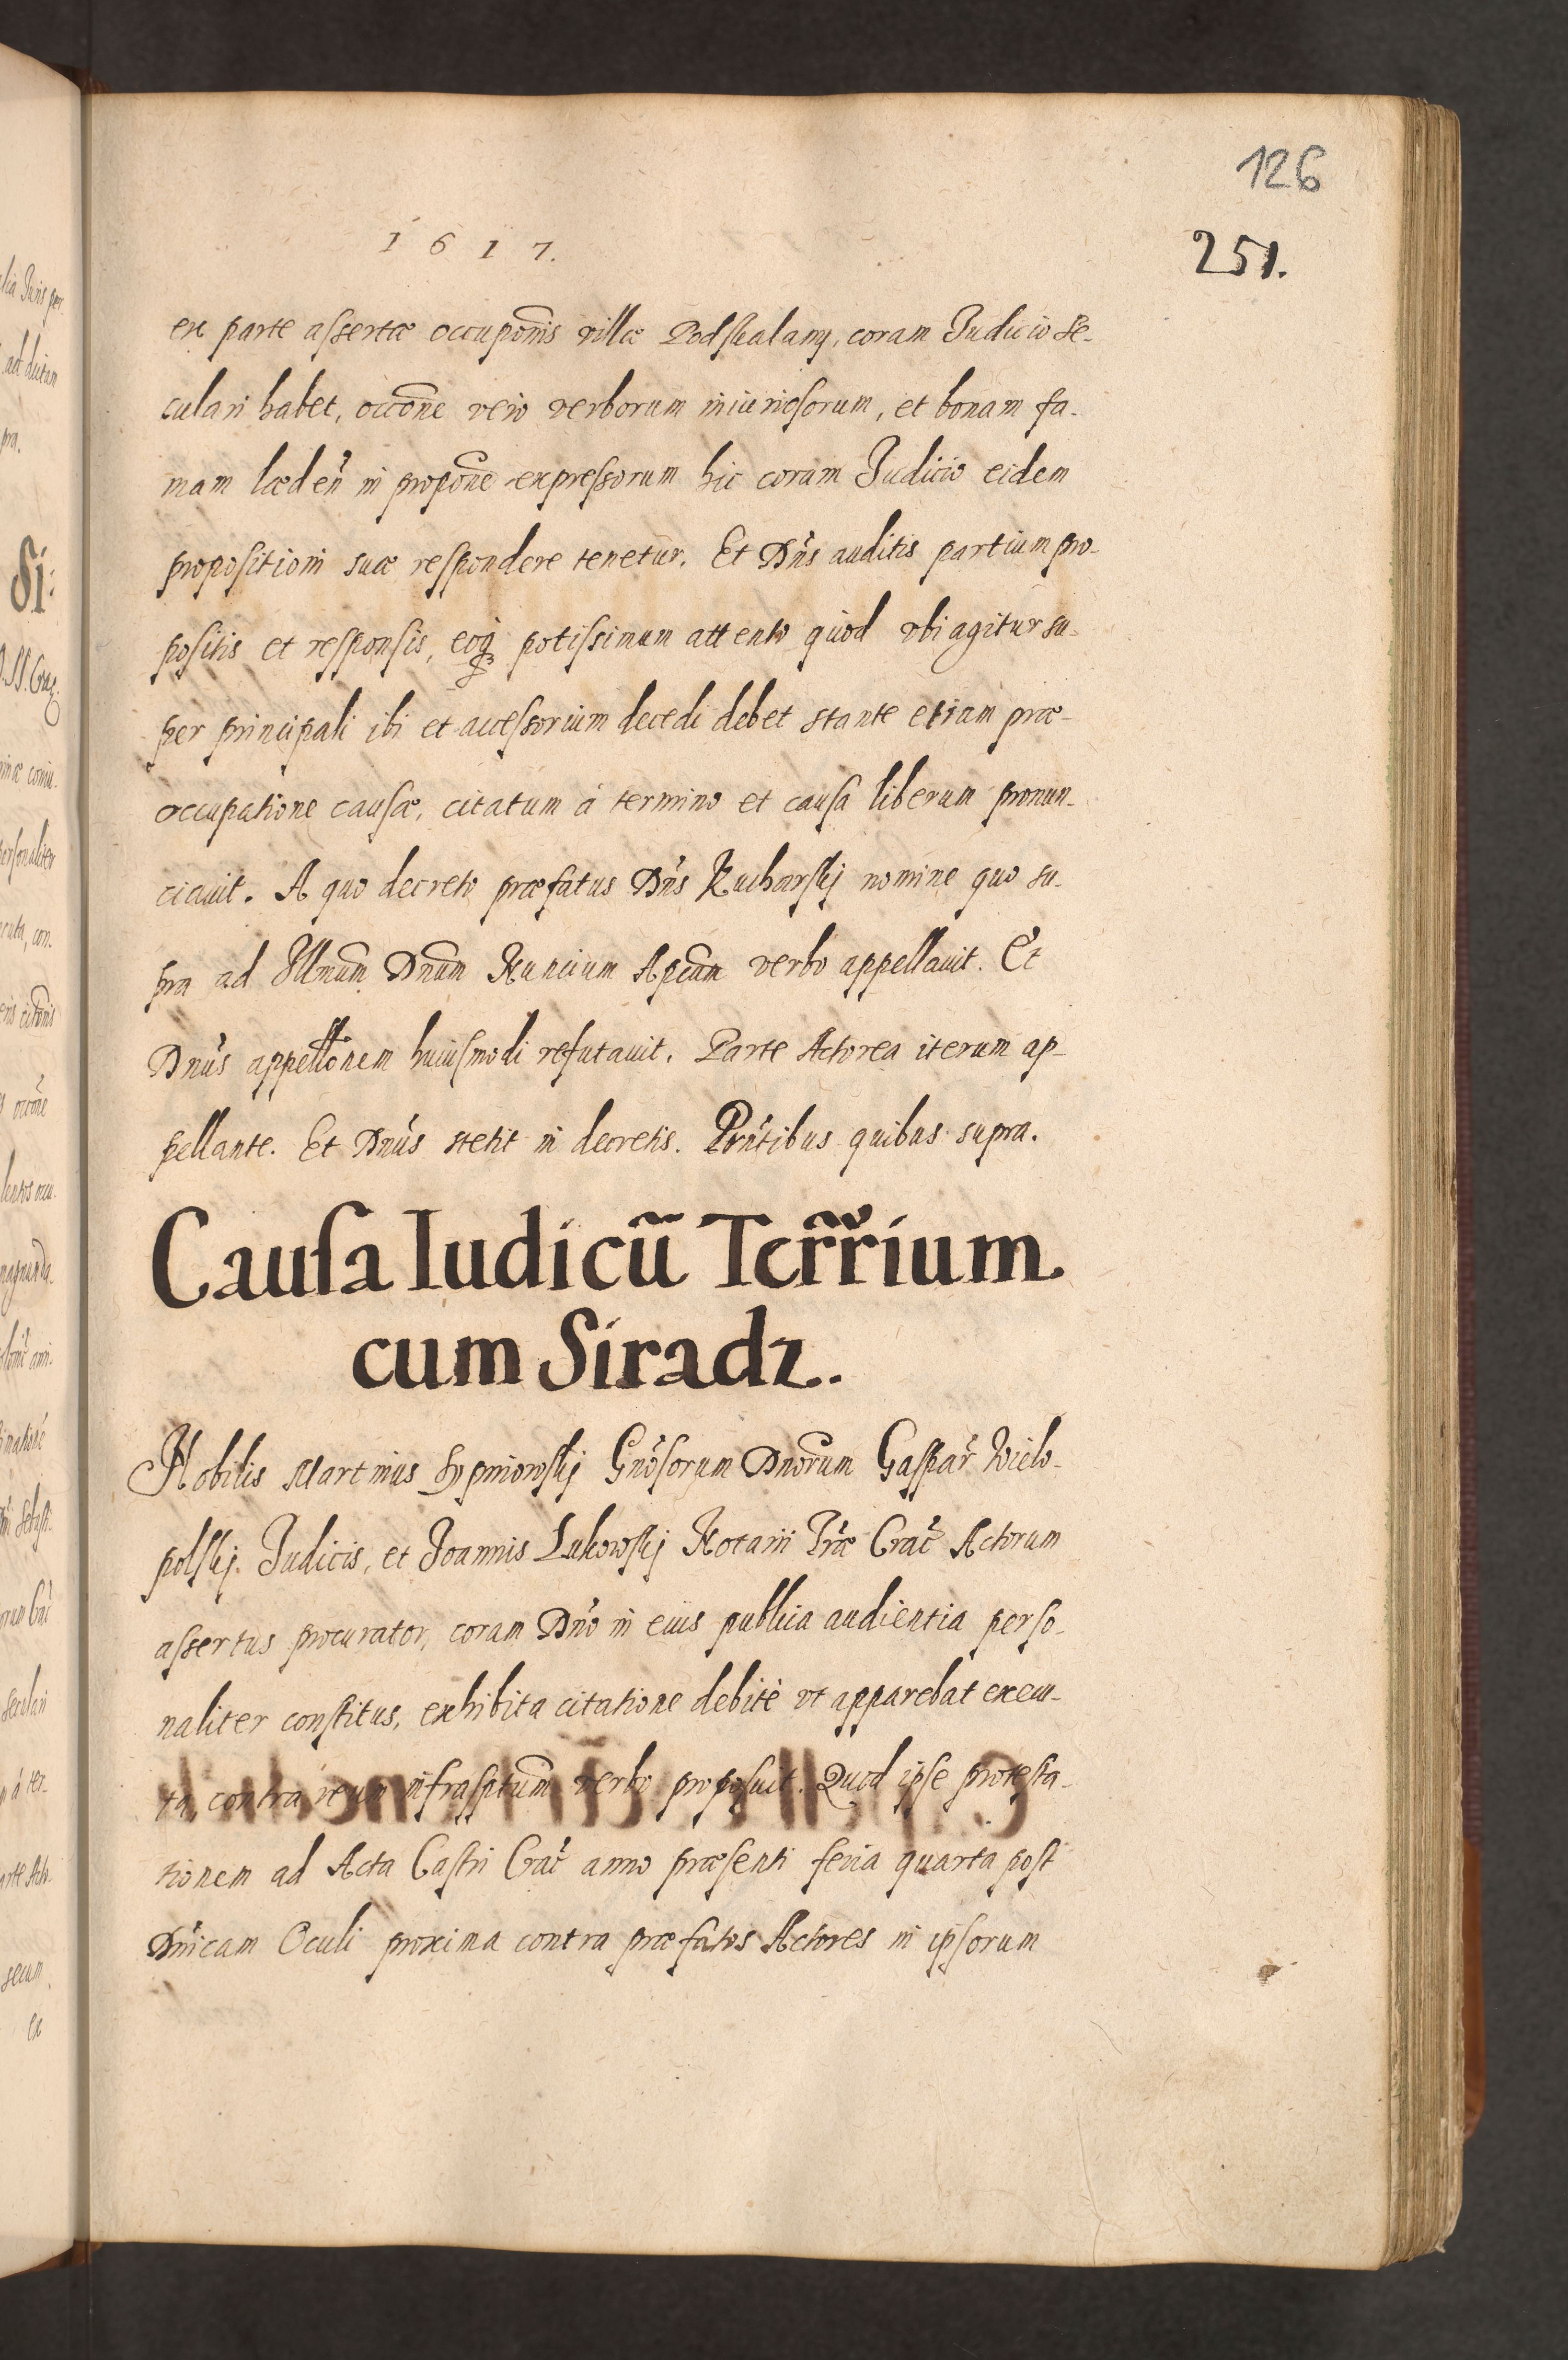 126
1617.
251.
ex parte assertæ occupõnis villæ Podskalany, coram Judicio se-
culari habet, occõne vero verborum iniuriosorum, et bonam fa-
mam lædeñ in propõne expressorum hic coram Judicio eidem
propositioni suæ respondere tenetur. Et Dñs auditis partium pro-
positis et responsis, eoq potissimum attento quod vbi agitur su-
per principali ibi et accessorium decedi debet stante etiam præ-
occupatione causæ, citatum á termino et causa liberum pronun-
ciauit. A quo decreto præfatus Dñs Kucharskj nomine quo su-
pra ad Illmũm Dnũm Nuncium Apcũm verbo appellauit. Et
Dnũs appellõnem huiusmodi refutauit. Parte Actorea iterum ap-
pellante. Et Dnũs stetit in decretis. Prñtibus quibus supra.
Causa Iudicũ Terr̃rium
cum Siradz.
Nobilis Martinus Sypniowskj Gnõsorum Dnõrum Gaspar̃ Wielo-
polskj Judicis, et Joannis Lukowskj Notarii Tr̃æ Crac̃ Actorum
assertus procurator, coram Dñõ in eius publica audientia perso-
naliter constitus, exhibita citatione debitè vt apparebat execu-
ta, contra reum infrasptũm verbo proposuit. Quod ipse protesta-
tionem ad Acta Castri Crac̃ anno præsenti feria quarta post
Dñicam Oculi proxima contra præfatos Actores in ipsorum